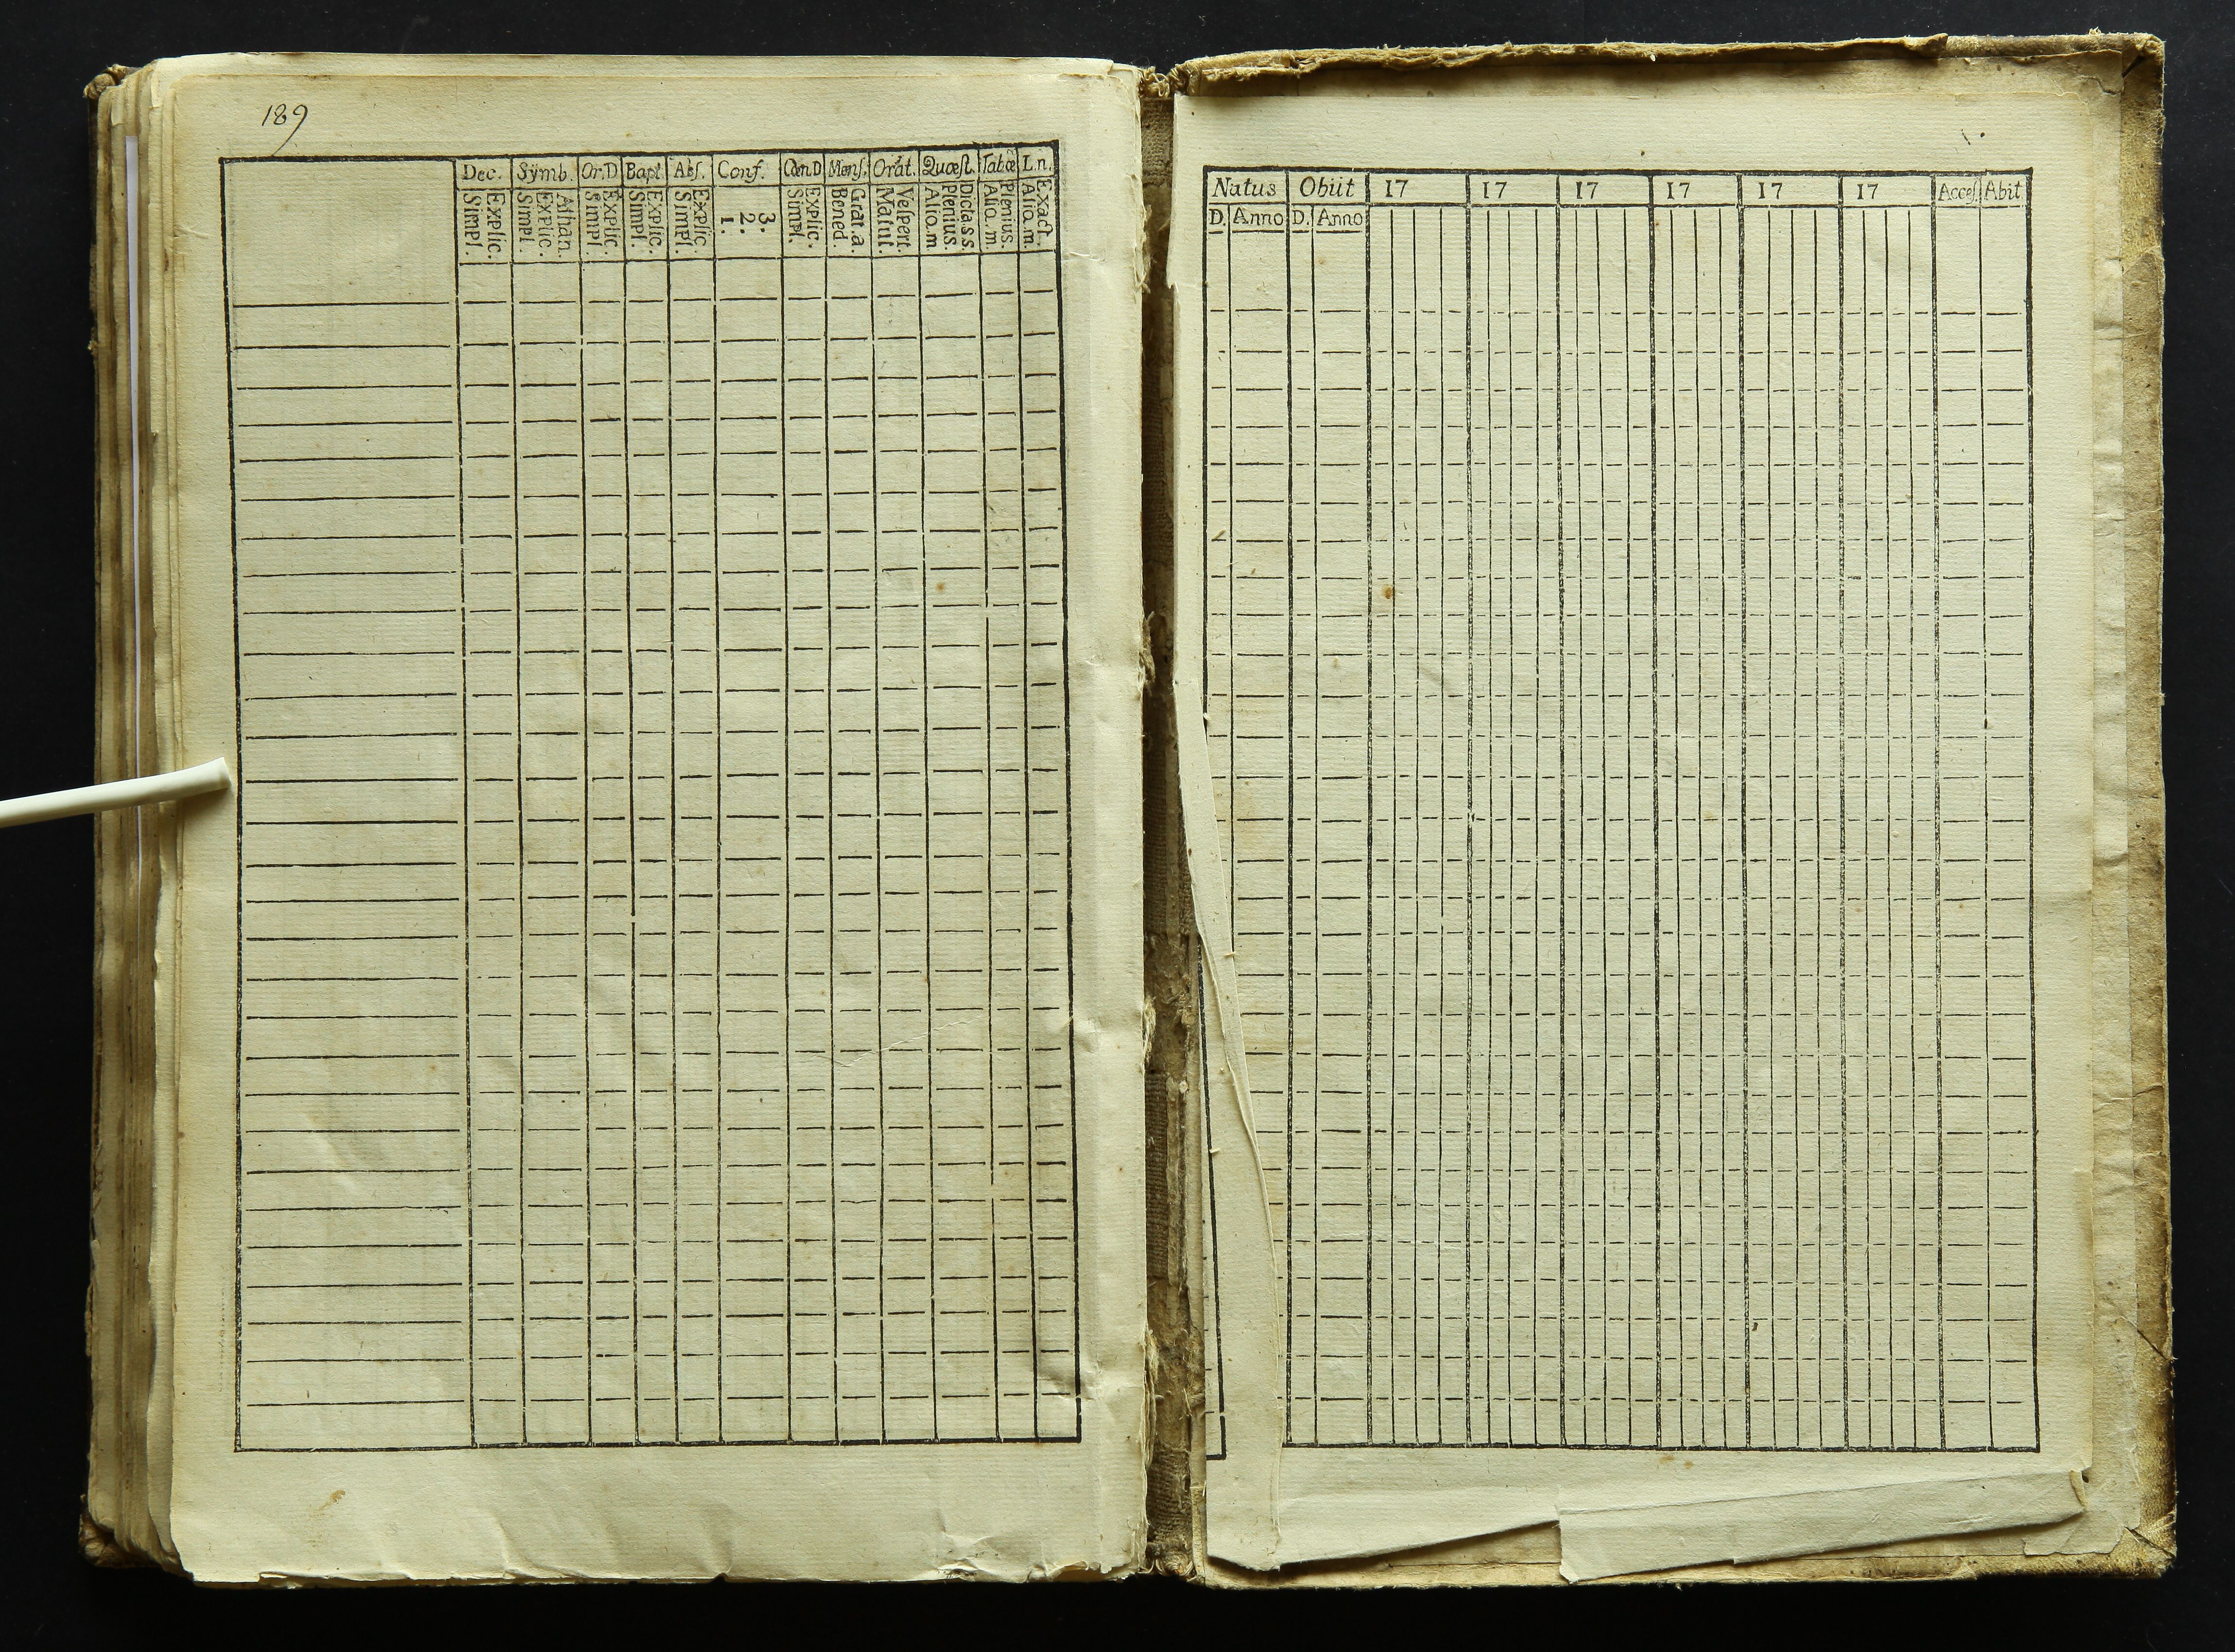 189
Dec. Sÿmb. Or.D Bapt. Abſ. Conf. CœnD Menſ. Orat. Quæſt. Tabæ L.n.
Simpl. Explic. Simpl. Explic. Athan. Simpl Explic Simpl. Explic. Simpl. Explic. 1. 2. 3. Simpl. Explic. Bened. Grat.a. Matut. Veſpert. Alio.m Plenius. Dicta s.s. Alio.m. Plenius. Alio.m. Exact.
Natus Obiit 17 17 17 17 17 17 Acceſ Abit
D. Anno D. Anno